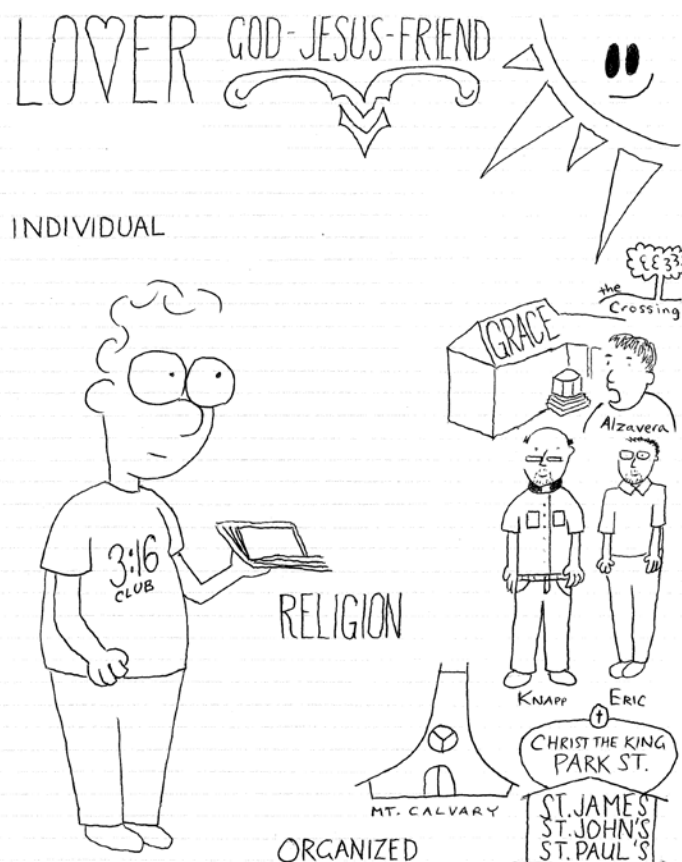 LOVER
GOD-JESUS-FRIEND
INDIVIDUAL
the
Crossing
GRACE
Alzavera
3:16
CLUB
RELIGION
KNAPP
ERIC
CHRIST THE KING
PARK ST.
MT. CALVARY
ST. JAMES
ST. JOHN'S
ST. PAUL'S
ORGANIZED